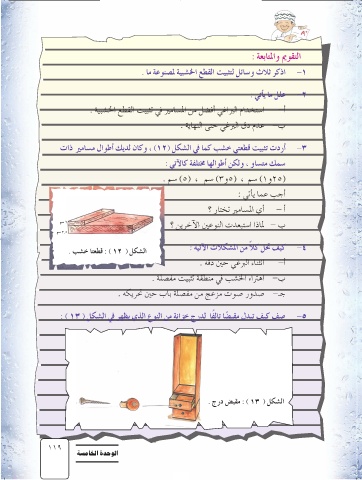 التقويم والمتابعة :
١- اذكر ثلاث وسائل لتثبيت القطع الخشبية لمصنوعة ما .
٢- علل ما يأتي :
أ- استخدام البراغي أفضل من المسامير في تثبيت القطع الخشبية .
ب- عدم دق البرغي حتى النهاية .
٣- أردت تثبيت قطعتي خشب كما في الشكل (١٢) ، وكان لديك أطوال مسامير ذات
سمك متساوٍ ، ولكن أطوالها مختلفة كالآتي :
(١و٢٥) سم ، (٣و٥) سم ، (٥) سم .
أجب عما يأتي :
أ- أي المسامير تختار ؟
ب- لماذا استبعدت النوعين الآخرين ؟
الشكل (١٢) : قطعتا خشب .
٤- كيف تحل كلاً من المشكلات الآتية :
أ- انثناء البرغي حين دقه .
ب- اهتراء الخشب في منطقة تثبيت مفصلة .
جـ- صدور صوت مزعج من مفصلة باب حين تحريكه .
٥- صف كيف تبدل مقبضًا تالفًا لدرج خزانة من النوع الذي يظهر في الشكل (١٣) :
الشكل (١٣) : مقبض درج .
الوحدة الخامسة
١١٩